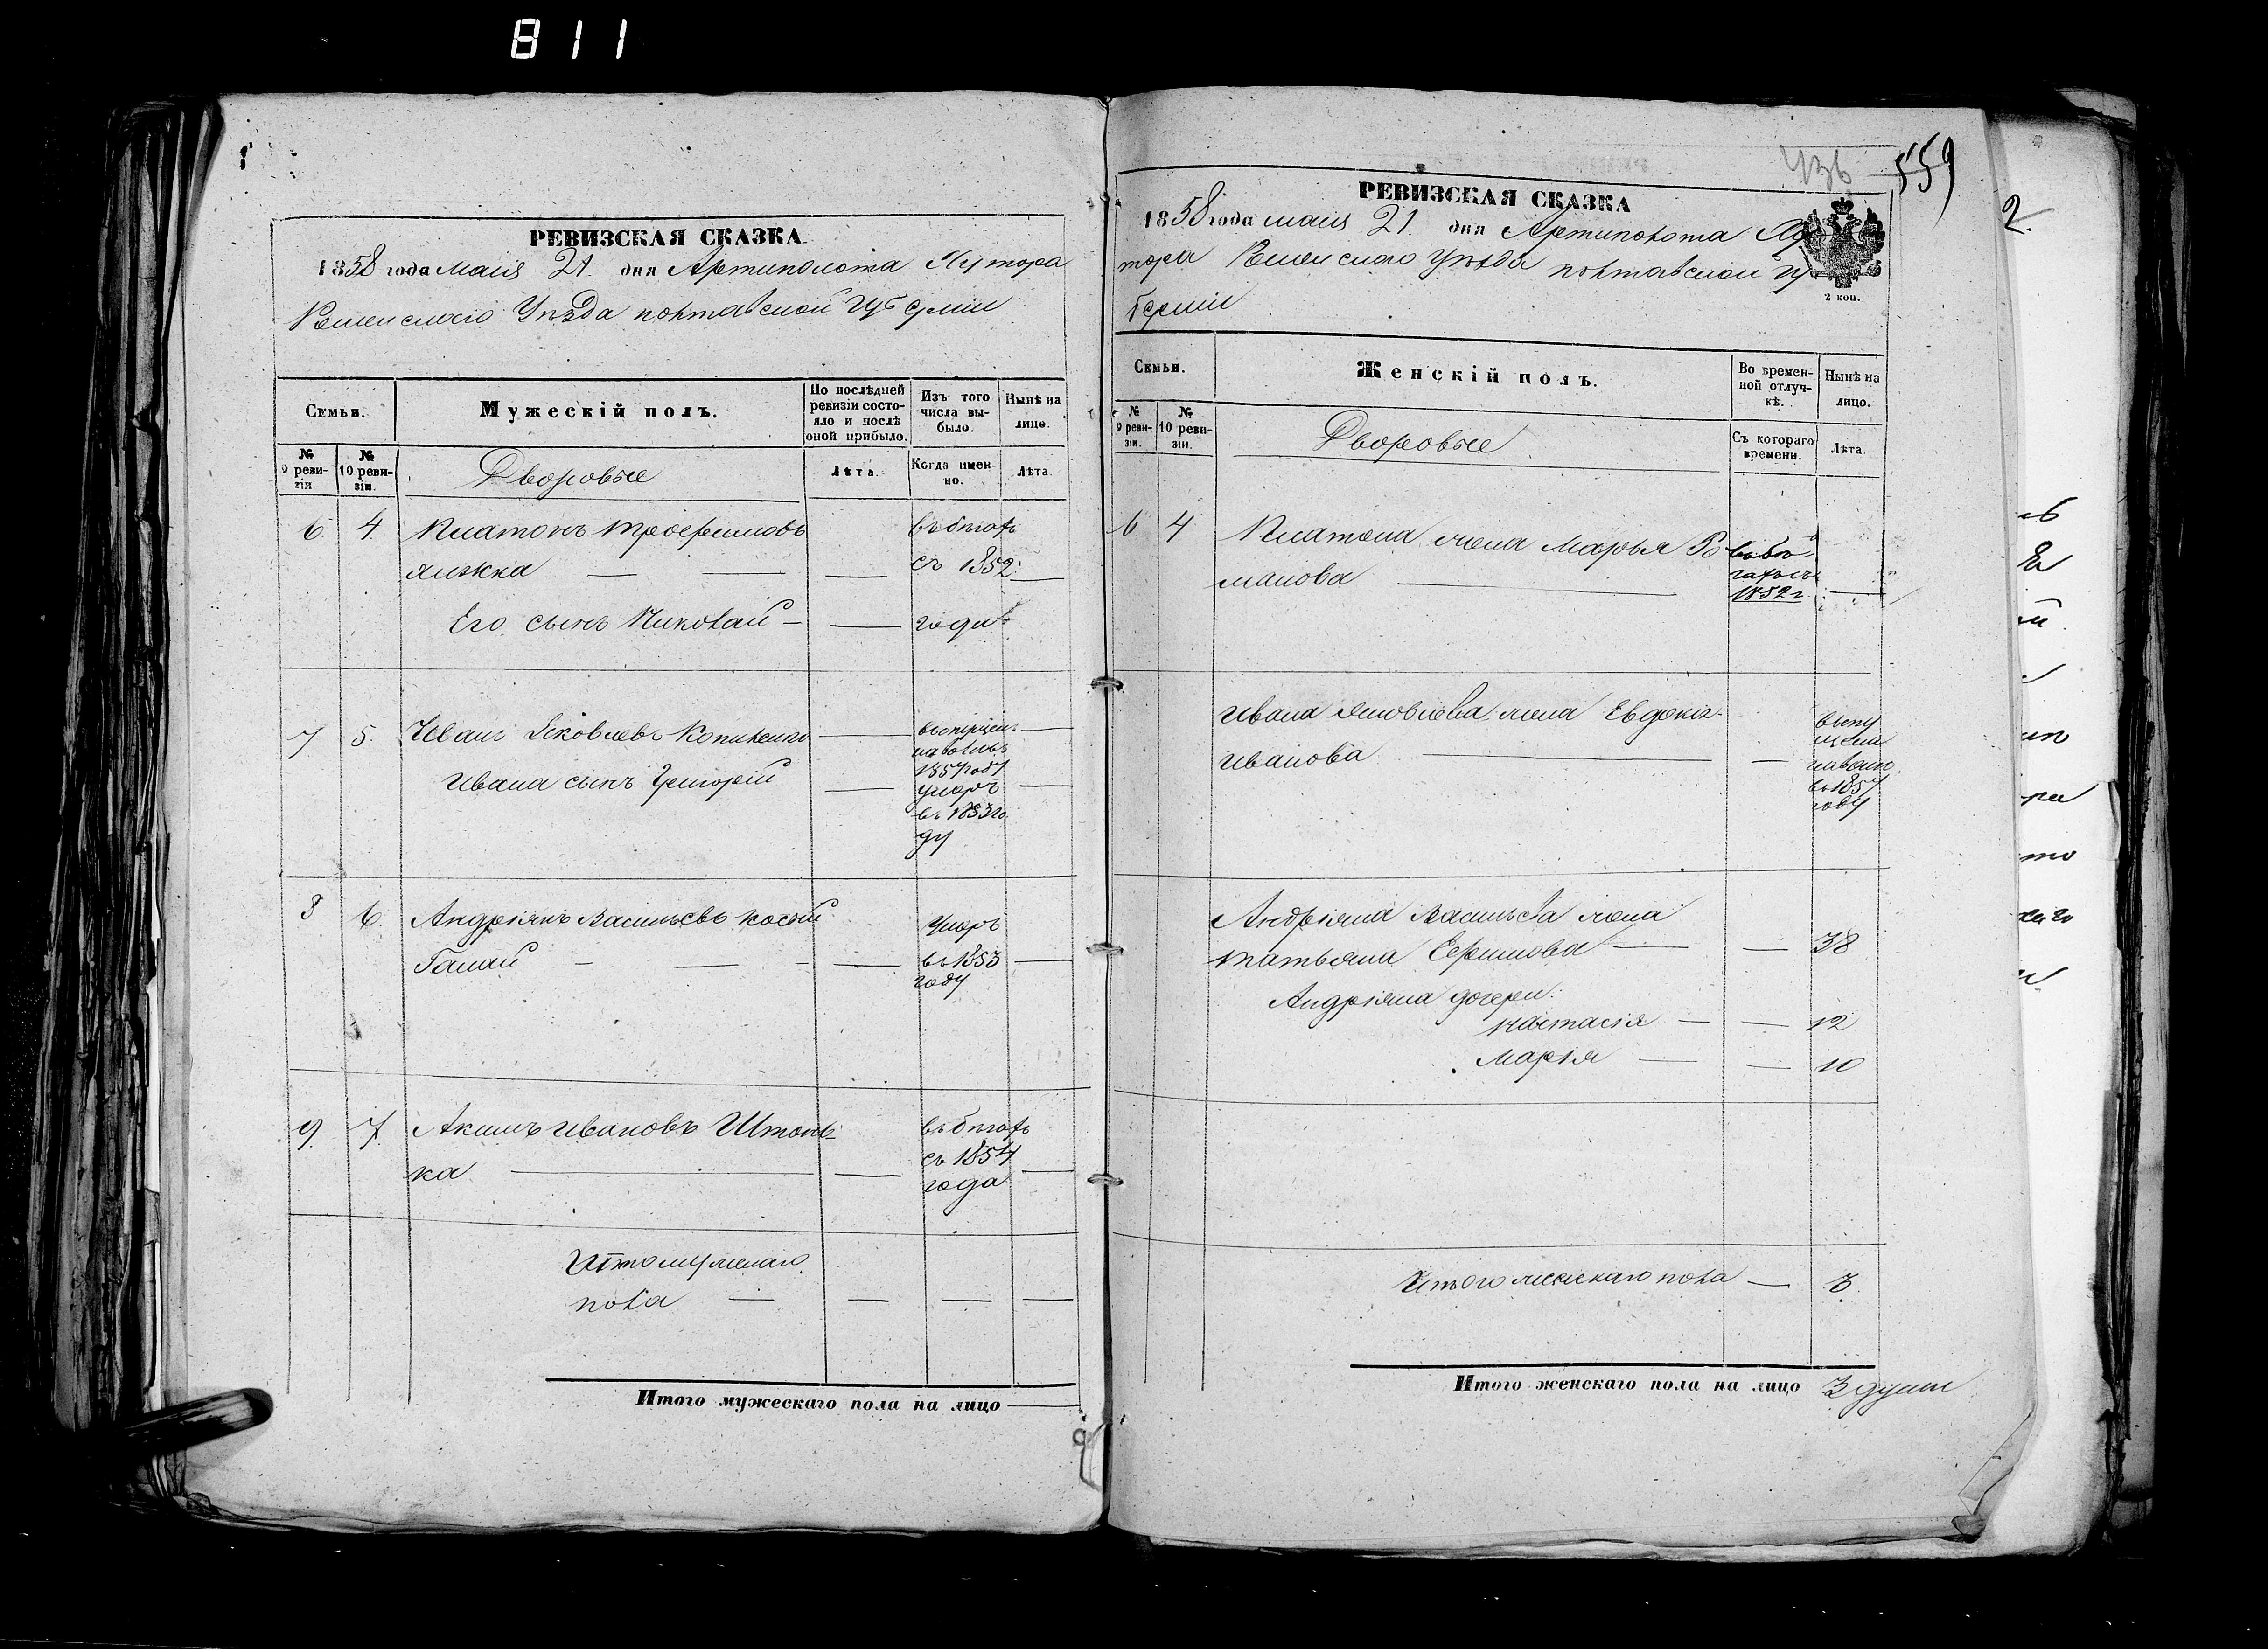 811
РЕВИЗСКАЯ СКАЗКА
1858 года Маія 21. дня Артиполота Хутора
Роменскаго Уѣзда полтавской Губерніи
Семьи.
Мужескій полъ.
По послѣдней ревизіи состояло и послѣ оной прибыло.
Изъ того числа выбыло.
Нынѣ на лицо.
№ 9 ревизіи
№ 10 ревизіи.
Дворовые
Лѣта.
Когда именно.
Лѣта.
6. 4. Платонъ Трофимовъ въ бѣгахъ
съ 1852
Его сынъ Николай — — года
7 5. Иванъ Яковлевъ
въ 1857 году
Ивана сынъ Григорій — умеръ —
въ 1853 го
ду
8 6. Андріянъ Васильевъ Косый умеръ
Галай — — — — въ 1853 —
году
9. 7. Акимъ Ивановъ въ бѣгахъ
ка — — съ 1854 —
года
Итого мужескаго
пола — — — —
Итого мужескаго пола на лицо —
436 559
РЕВИЗСКАЯ СКАЗКА
1858 года маія 21. дня Артиполота Ху
тора Роменскаго уѣзда полтавской гу
берніи
2 коп.
Семьи.
Женскій полъ.
Во временной отлучкѣ.
Нынѣ на лицо.
№ 9 ревизіи.
№ 10 ревизіи.
Дворовые
Съ котораго времени.
Лѣта.
6 4 Платона жена Марья Ро въ бѣ
манова — гахъ съ
1852 г. —
Ивана Яковлева жена Евдокія
Иванова — —
въ 1857
году
Андріяна Васильева жена
Татьяна Ефимова — — 38
Андріяна дочери
Настасія — — 12
Марія — — 10
Итого женскаго пола — 3
Итого женскаго пола на лицо 3 души
2.